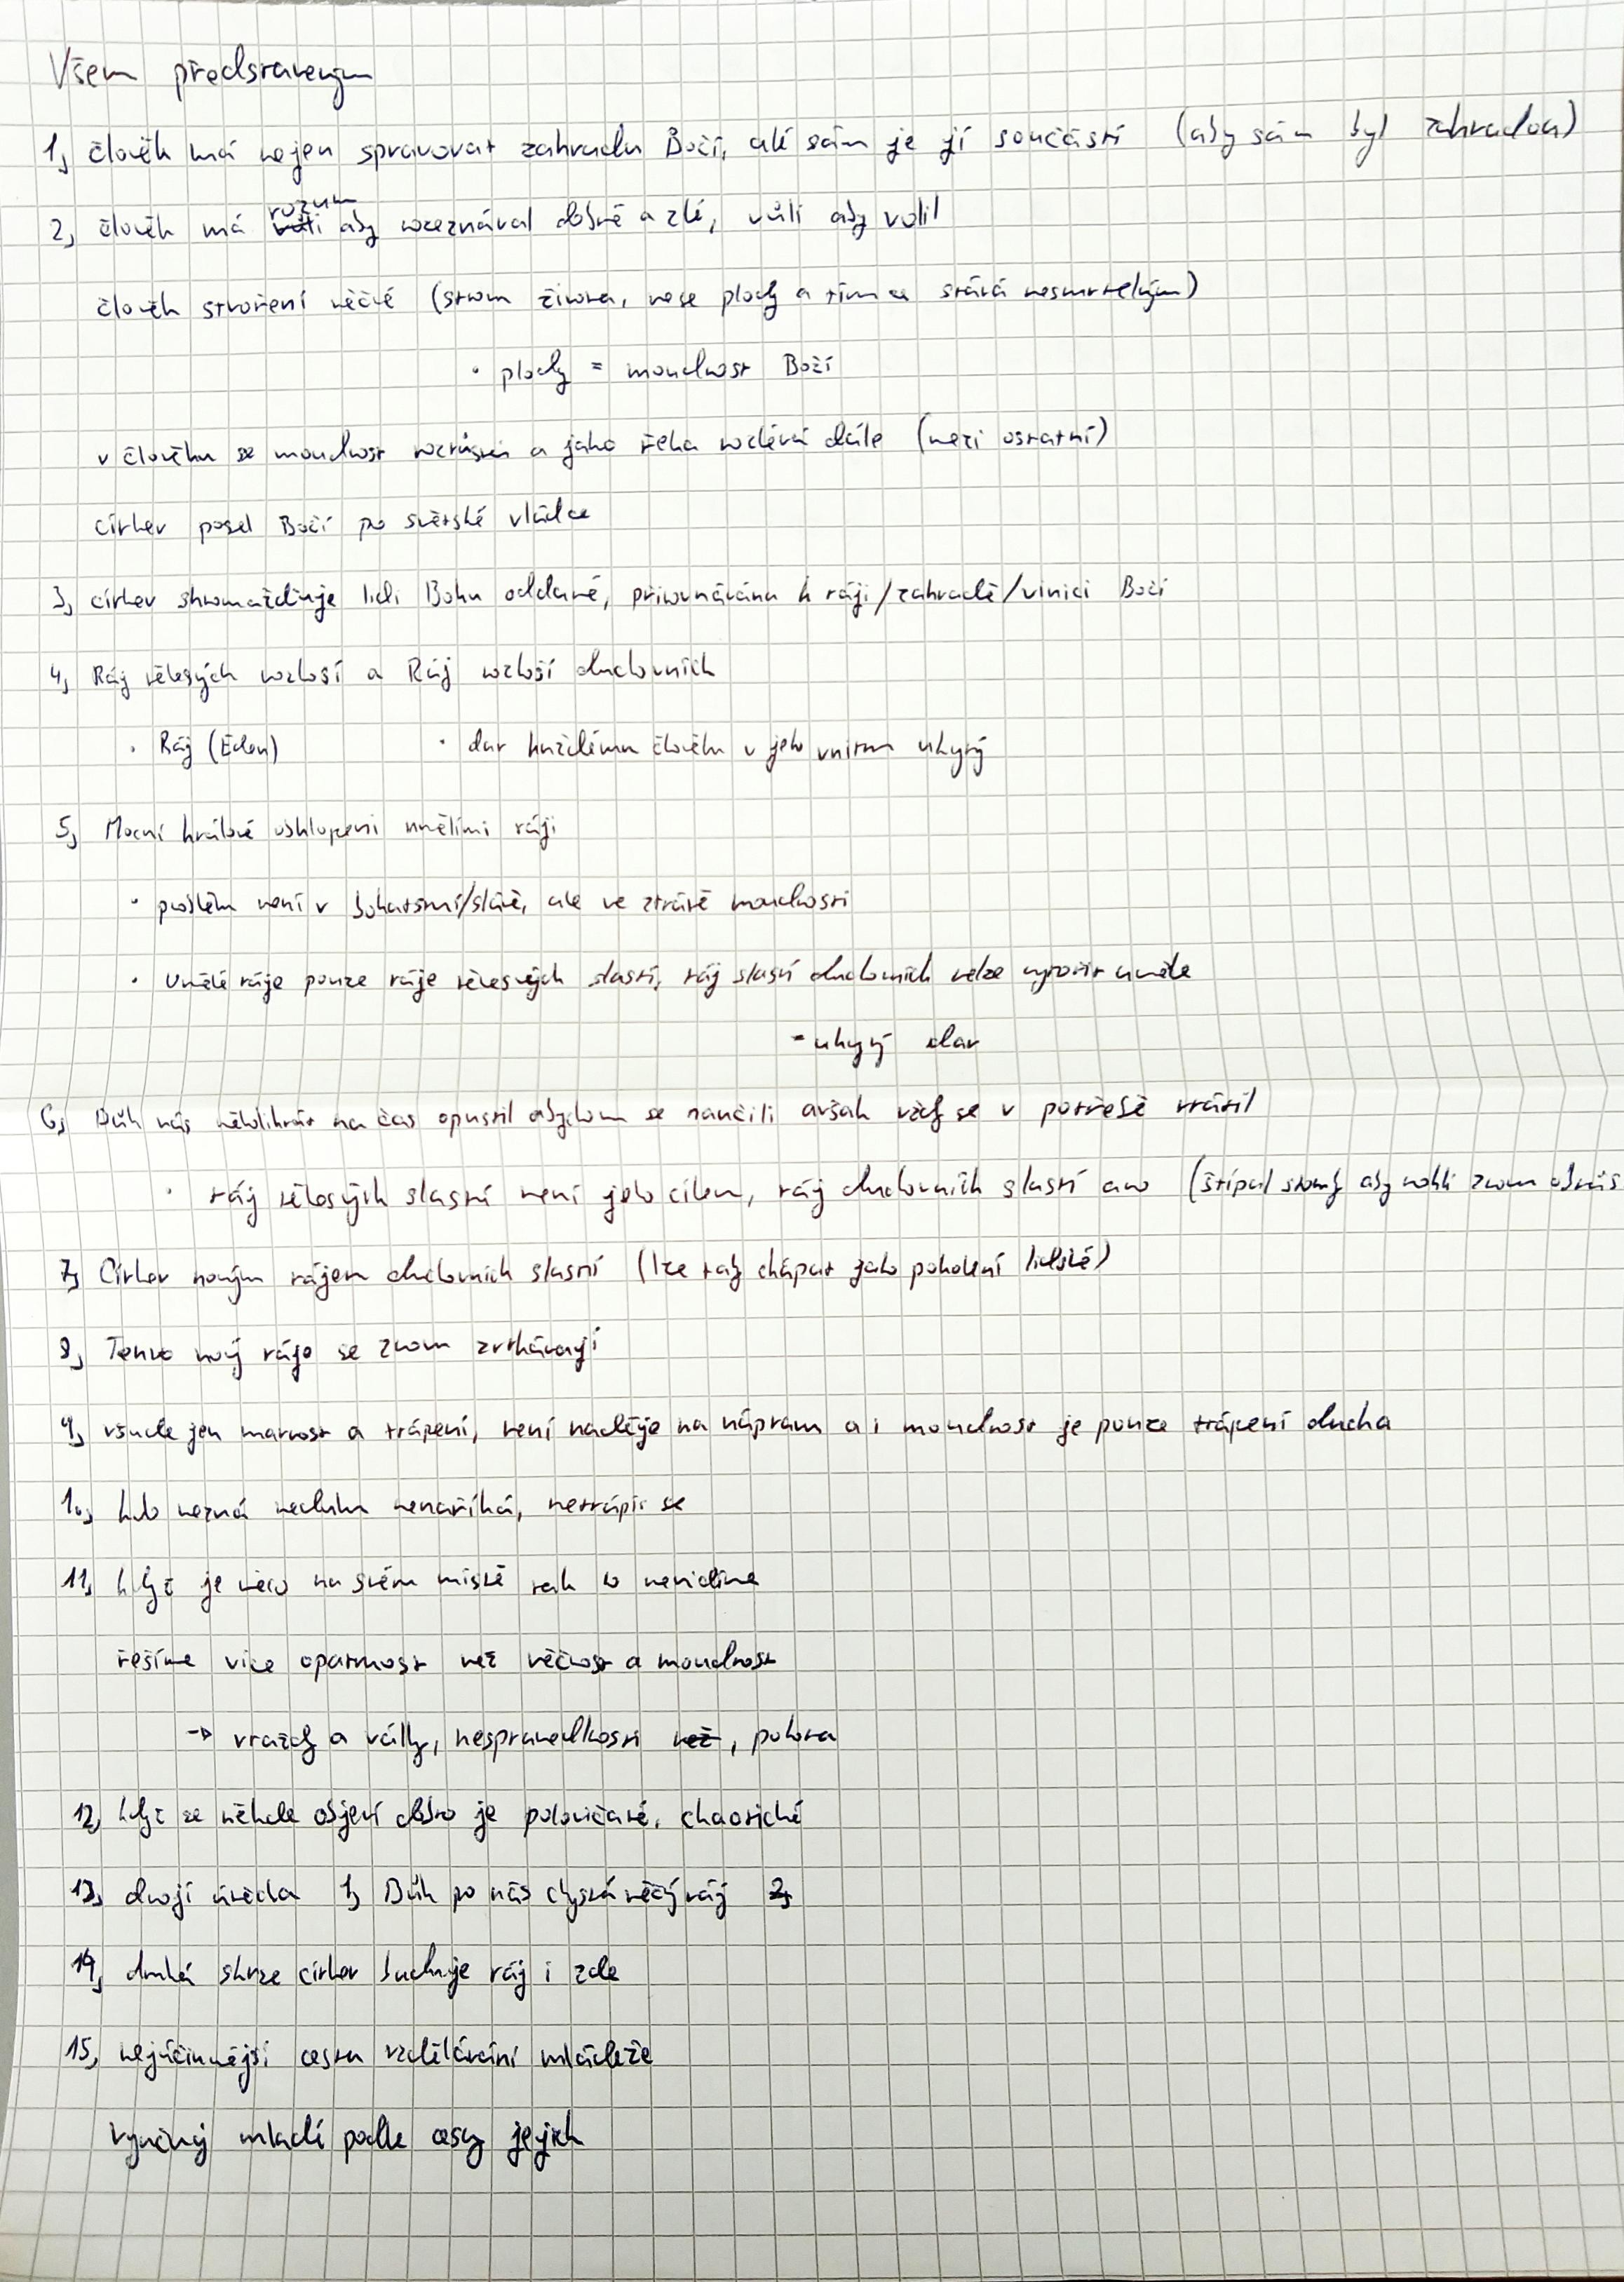 Všem představeným
1, člověk má nejen spravovat zahradu Boží, ale sám je její součástí (aby sám byl zahradou)
2, člověk má rozum aby rozeznával dobré a zlé, vůli aby volil
člověk stvoření věčné (strom života, nese plody a tím se stává nesmrtelným)
· plody = moudrost Boží
v člověku se moudrost rozrůstá a jako řeka rozlévá dále (mezi ostatní)
církev posel Boží po světské vládce
3, církev shromažďuje lidi Bohu oddané, přirovnávána k ráji/zahradě/vinici Boží
4, Ráj tělesných rozkoší a Ráj rozkoší duchovních
· Ráj (Eden) · dar každému člověku v jeho vnitru ukrytý
5, Mocní králové obklopeni umělími ráji
· problém není v bohatství/slávě, ale ve ztrátě moudrosti
· Umělé ráje pouze ráje tělesných slastí, ráj slastí duchovních nelze vytvořit uměle
- ukrytý dar
6, Bůh nás několikrát na čas opustil abychom se naučili avšak vždy se v potřebě vrátil
· ráj tělesných slastí není jeho cílem, ráj duchovních slastí ano (štípal stromy aby mohli znovu
7, Církev novým rájem duchovních slastí (lze taky chápat jako pokolení lidské)
8, Tento nový ráje se znovu zvrhávají
9, všude jen marnost a trápení, není naděje na nápravu a i moudrost je pouze trápení ducha
10, kdo nezná neduhu nenaříká, netrápí se
11, když je něco na svém místě tak to nevidíme
řešíme více opatrnost než věčnost a moudrost
→ vraždy a války, nespravedlnosti než, potora
12, když se někde objeví dobro je polovičaté, chaotické
13, dvojí útěcha 1, Bůh po nás chystá věčný ráj 2,
14, druhá skrze církev buduje ráj i zde
15, nejúčinnější cestou vzdělávání mládeže
Vyučuj mladí podle cesty jejich